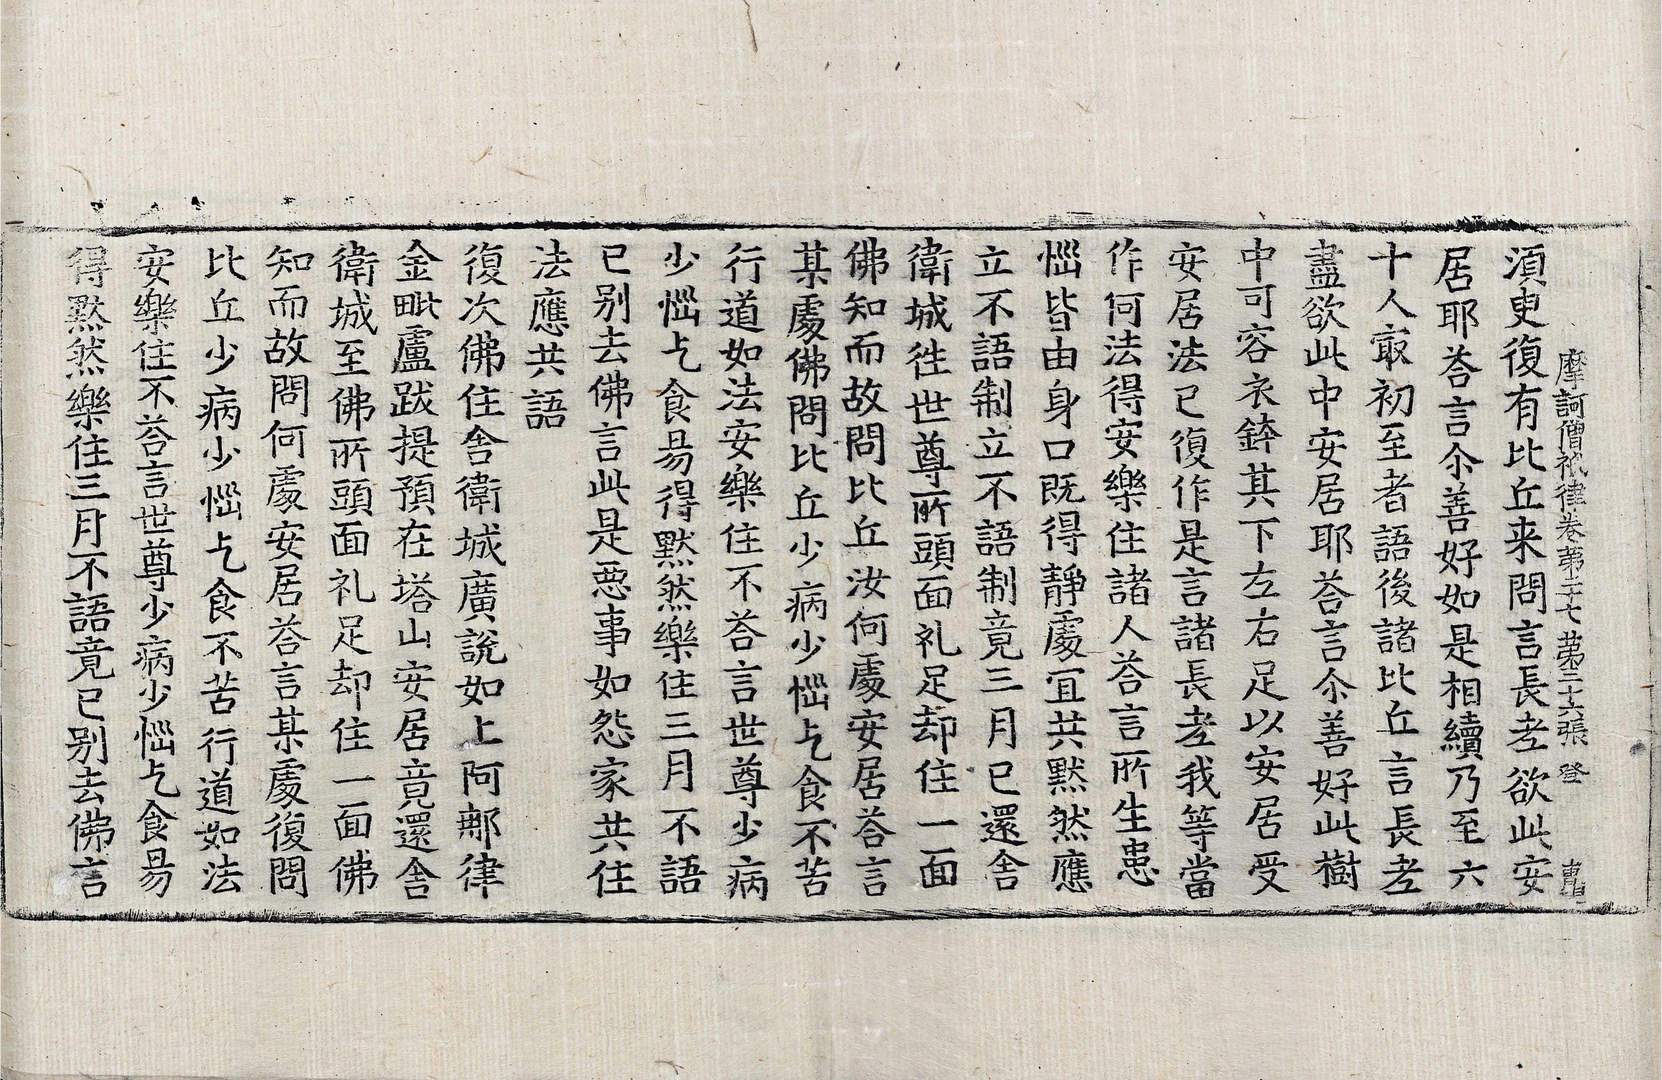 摩訶僧祇律卷第二十七 第三十六張 登
須臾復有比丘来問言長老欲此安
居耶荅言尒善好如是相續乃至六
十人㝡初至者語後諸比丘言長老
盡欲此中安居耶荅言尒善好此樹
中可容衣鉢其下左右足以安居受
安居法已復作是言諸長老我等當
作何法得安樂住諸人荅言所生患
惱皆由身口既得靜處宜共默然應
立不語制立不語制竟三月已還舍
衛城徃世尊所頭面礼足却住一面
佛知而故問比丘汝何處安居荅言
某處佛問比丘少病少惱乞食不苦
行道如法安樂住不荅言世尊少病
少惱乞食易得默然樂住三月不語
已別去佛言此是惡事如怨家共住
法應共語
復次佛住舍衛城廣說如上阿那律
金毗盧跋提預在塔山安居竟還舍
衛城至佛所頭面礼足却住一面佛
知而故問何處安居荅言某處復問
比丘少病少惱乞食不苦行道如法
安樂住不荅言世尊少病少惱乞食易
得默然樂住三月不語竟已別去佛言